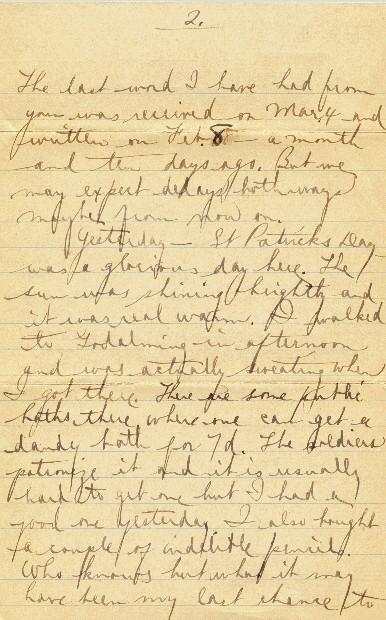 2.
The last word I have had from
you was received on Mar. 4 and
written on Feb. 8 - a month
and ten days ago. But we
may expect delays both ways
maybe from now on.
Yesterday - St Patricks Day
was a glorious day here. The
sun was shining brightly and
it was real warm. I walked
to Godalming in afternoon
and was actually sweating when
I got there. There are some public
baths there where one can get a
dandy bath for 7d. The soldiers
patronize it and it is usually
hard to get one but I had a
good one yesterday I also bought
a couple of indelible pencils.
Who knows but what it may
have been my last chance to